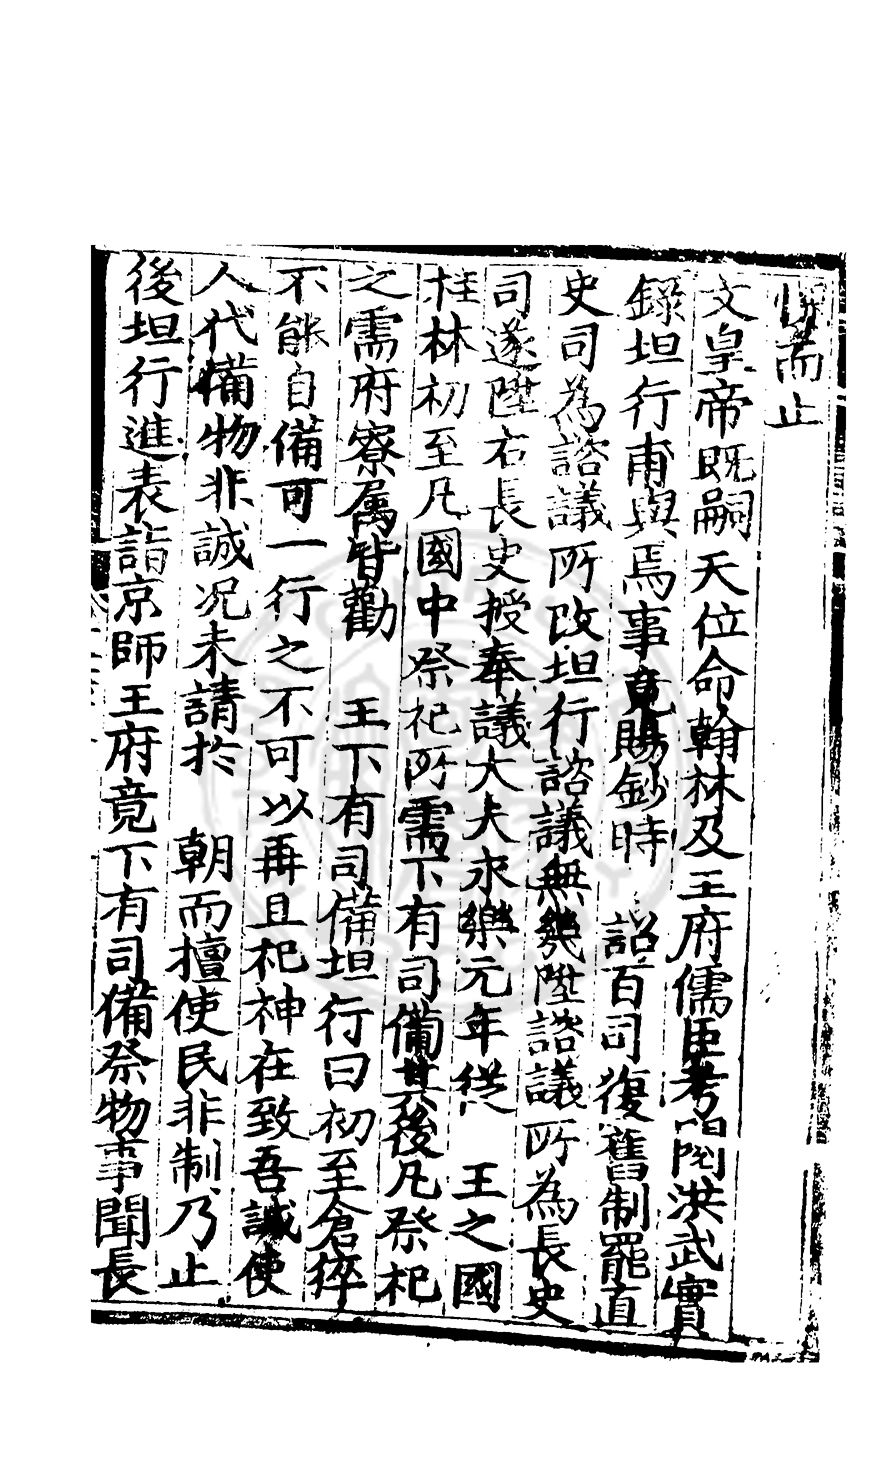 而止
文皇帝既嗣天位命翰林及王府儒臣考閱洪武實
錄坦行甫與焉事竟賜鈔時 詔百司復舊制罷直
史司為諮議所改坦行諮議無幾陞諮議所為長史
司遂陞右長史授奉議大夫永樂元年從 王之國
桂林初至凡國中祭祀所需下有司備其後凡祭祀
之需府寮属皆勸 王下有司備坦行曰初至倉猝
不能自備可一行之不可以再且祀神在致吾誠使
人代備物非誠况未請於 朝而擅使民非制乃止
後坦行進表詣京師王府竟下有司備祭物事聞長